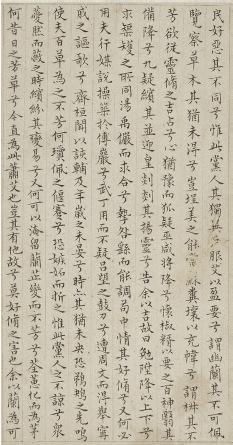 民好惡其不同兮惟此黨人其獨異戶服艾以盈要兮謂幽蘭其不可佩
覽察草木其猶未得兮豈珵美之能當蘇糞壤以充幃兮謂申椒其不
芳欲從靈脩之吉占兮心猶豫而狐疑巫咸將降兮懷椒糈以要之百神翳其
備降兮九疑繽其並迎皇剡剡其揚靈兮告余以吉故曰勉陞降以上下兮
求榘矱之所同湯禹儼而求合兮摯咎繇而能調苟中情其好脩兮又何必
用夫行媒說操築於傅巖兮武丁用而不疑呂望之鼓刀兮遭周文而得舉甯
戚之謳歌兮齊桓聞以該輔及年歲之未晏兮時亦其猶未央恐鵜鴃之先鳴
使夫百草為之不芳何瓊佩之偃蹇兮恐嫉妬而折之惟此黨人之不諒兮衆
薆然而蔽之時繽紛其變易兮又何可以淹留蘭芷變而不芳兮荃蕙化而為茅
何昔日之芳草兮今直為此蕭艾也豈其有他故兮莫好脩之害也余以蘭為可